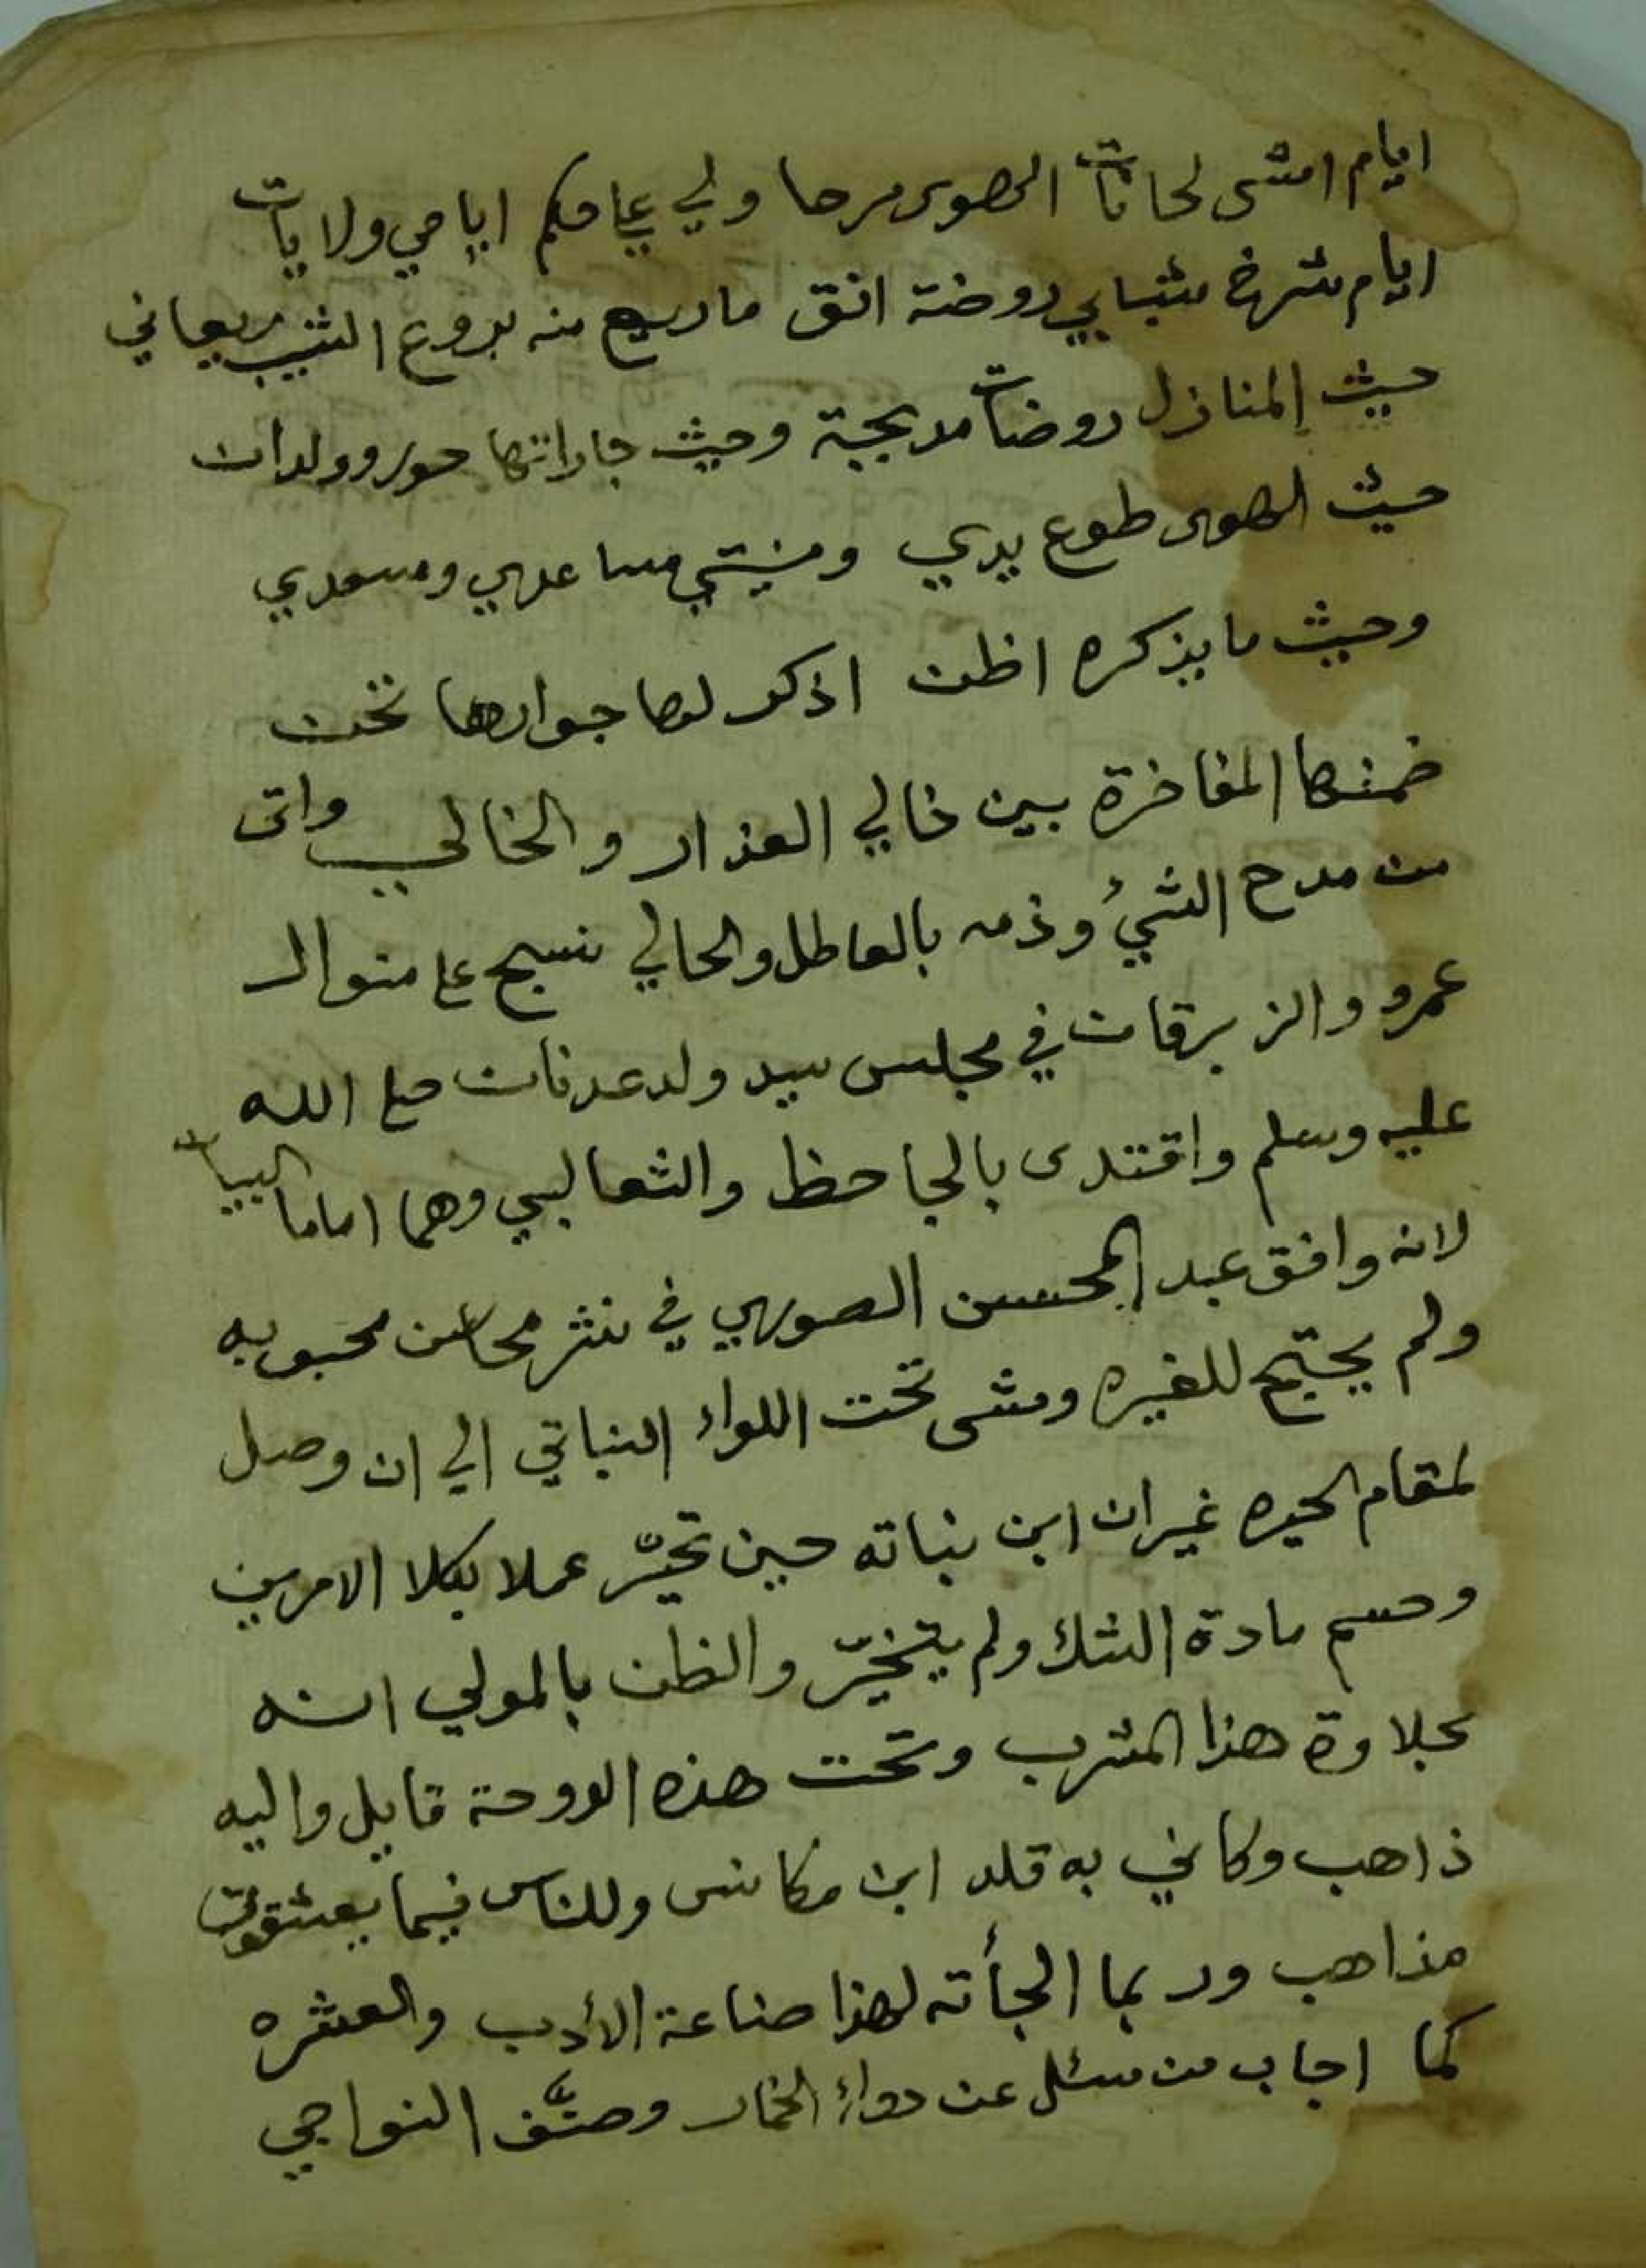 ايام امشى لحانات الهوى مرحا ولي عيا مكم ايامي ولايات
ايام شرخ شبابي روضة انق ما ريع منه بروع الشيب ريعاني
حيث المنازل روضات مدبجة وحيث جاراتها حور وولدان
حيث الهوى طوع يدي ومنيتي مساعدي ومسعدي
وحيث ما يذكره اظن اذكر لها جوارها تخت
ضمنها المفاخرة بين خالي العذار والخالي واتى
من مدح الشيءُ وذمه بالعاطل والحالي نسج على منوال
عمرو والزبرقان في مجلس سيد ولد عدنان صلى الله
عليه وسلم واقتدى بالجاحظ والثعالبي وهما اماما البيان
لانه وافق عبد المحسن الصوري في نثر محاسن محبوبه
ولم يحتج للغيره ومشى تحت اللواء النباتي الي ان وصل
لمقام الحيره غير ان ابن نباته حين تحيّر عملا بكلا الامرين
وحسم مادة الشك ولم يتخيّر والظن بالمولي انه
بحلاوة هذا المشرب وتحت هذه الدوحة قايل واليه
ذاهب وكاني به قلد ابن مكانس وللناس فيما يعشقون
مذاهب وربما الجأته لهذا صناعة الأدب والعشره
كما اجاب من سئل عن دواء الخمار وصنَّف النواجي